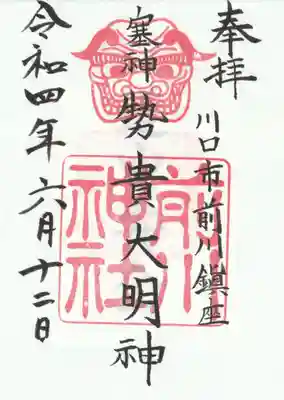 奉拝
川口市前川鎮座
塞神 勢貴大明神
令和四年六月十二日
前川神社